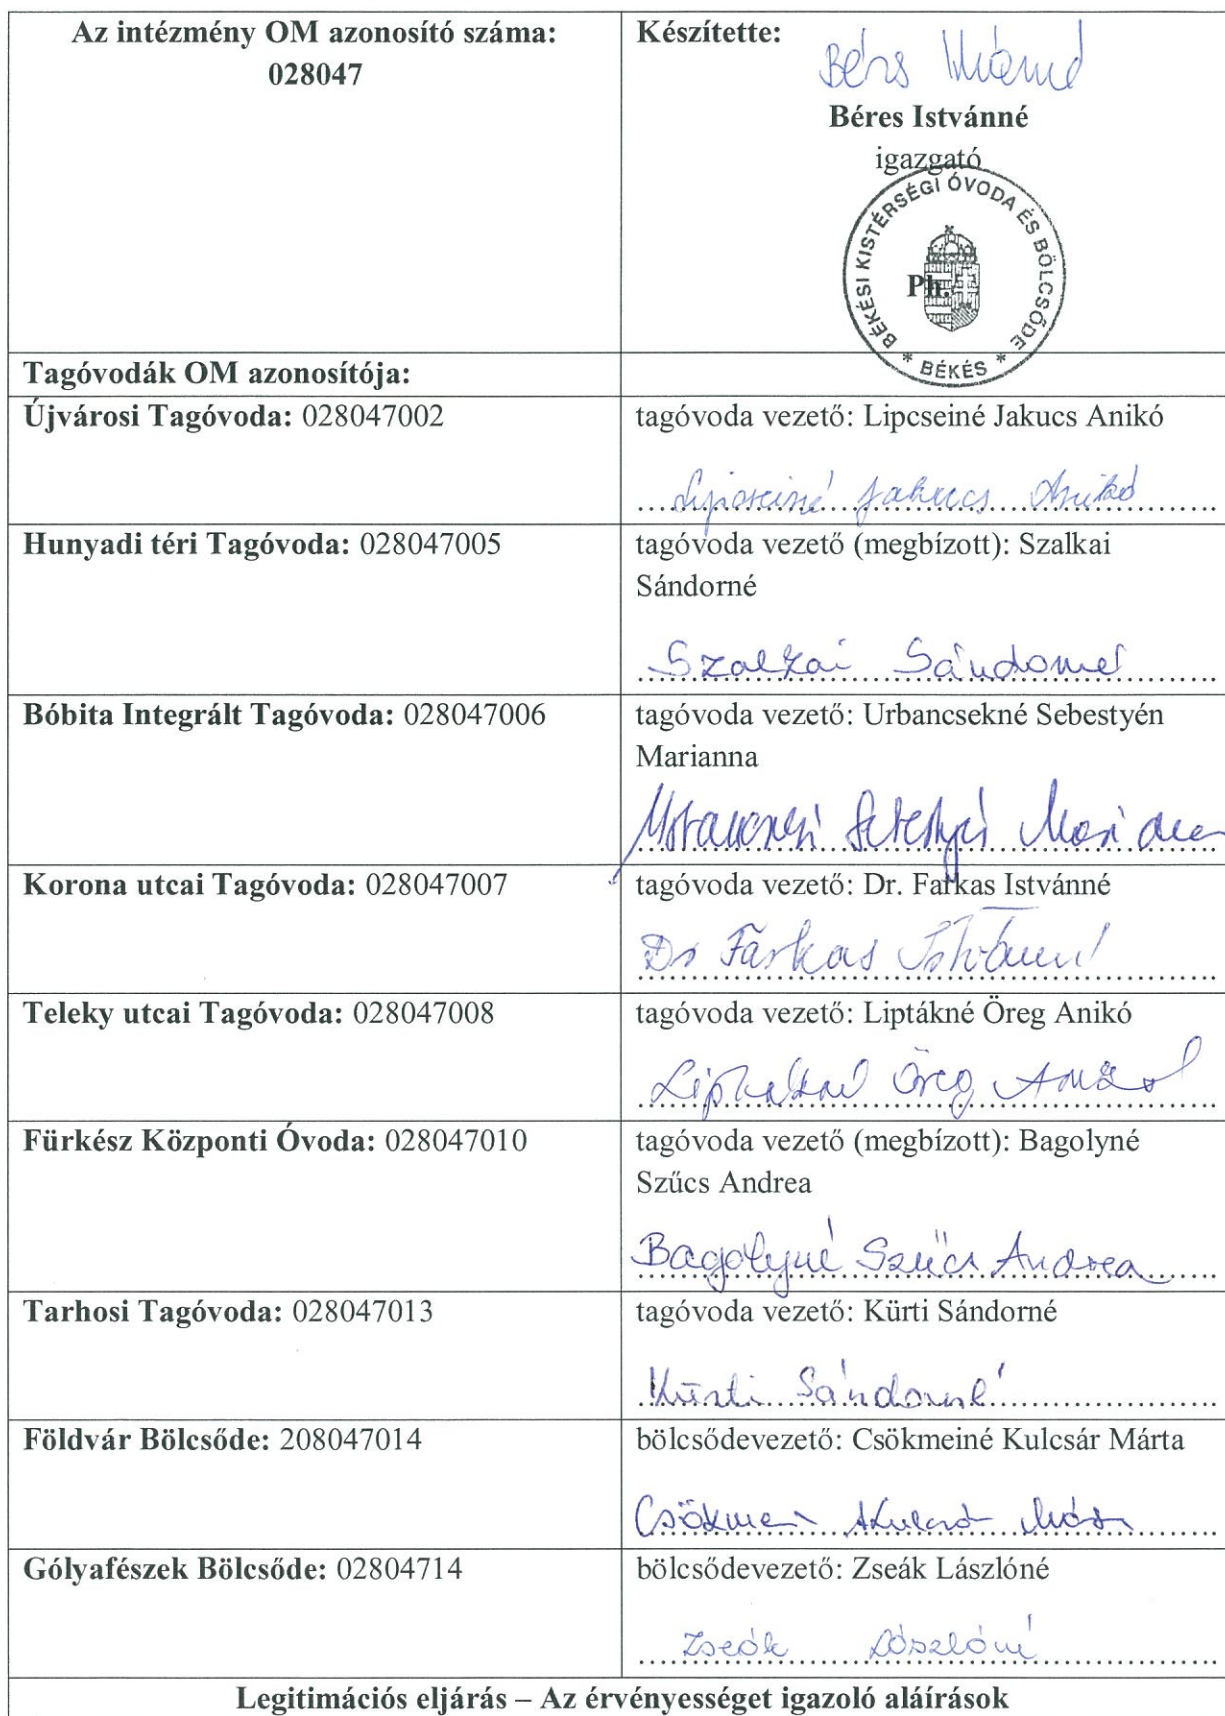 Az intézmény OM azonosító száma:
028047
Készítette:
Béres Istvánné
Béres Istvánné
igazgató
BÉKÉSI KISTÉRSÉGI ÓVODA ÉS BÖLCSŐDE
* BÉKÉS *
Ph.
Tagóvodák OM azonosítója:
Újvárosi Tagóvoda: 028047002
tagóvoda vezető: Lipcseiné Jakucs Anikó
Lipcseiné Jakucs Anikó
Hunyadi téri Tagóvoda: 028047005
tagóvoda vezető (megbízott): Szalkai
Sándorné
Szalkai Sándorné
Bóbita Integrált Tagóvoda: 028047006
tagóvoda vezető: Urbancsekné Sebestyén
Marianna
Urbancsekné Sebestyén Marianna
Korona utcai Tagóvoda: 028047007
tagóvoda vezető: Dr. Farkas Istvánné
Dr Farkas Istvánné
Teleky utcai Tagóvoda: 028047008
tagóvoda vezető: Liptákné Öreg Anikó
Liptákné Öreg Anikó
Fürkész Központi Óvoda: 028047010
tagóvoda vezető (megbízott): Bagolyné
Szűcs Andrea
Bagolyné Szűcs Andrea
Tarhosi Tagóvoda: 028047013
tagóvoda vezető: Kürti Sándorné
Kürti Sándorné
Földvár Bölcsőde: 208047014
bölcsődevezető: Csökmeiné Kulcsár Márta
Csökmeiné Kulcsár Márta
Gólyafészek Bölcsőde: 02804714
bölcsődevezető: Zseák Lászlóné
Zseák Lászlóné
Legitimációs eljárás – Az érvényességet igazoló aláírások